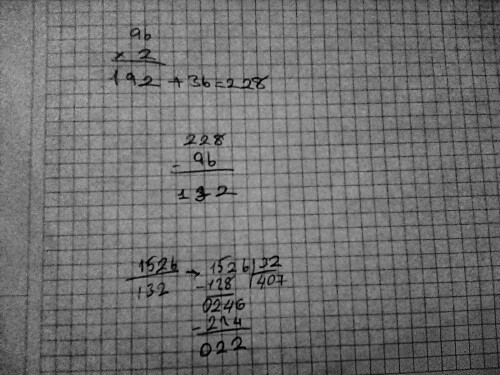 96
× 2
192 + 36 = 228
228
- 96
132
1526
132
→ 1526 | 32
-128 | 407
0246
-224
022